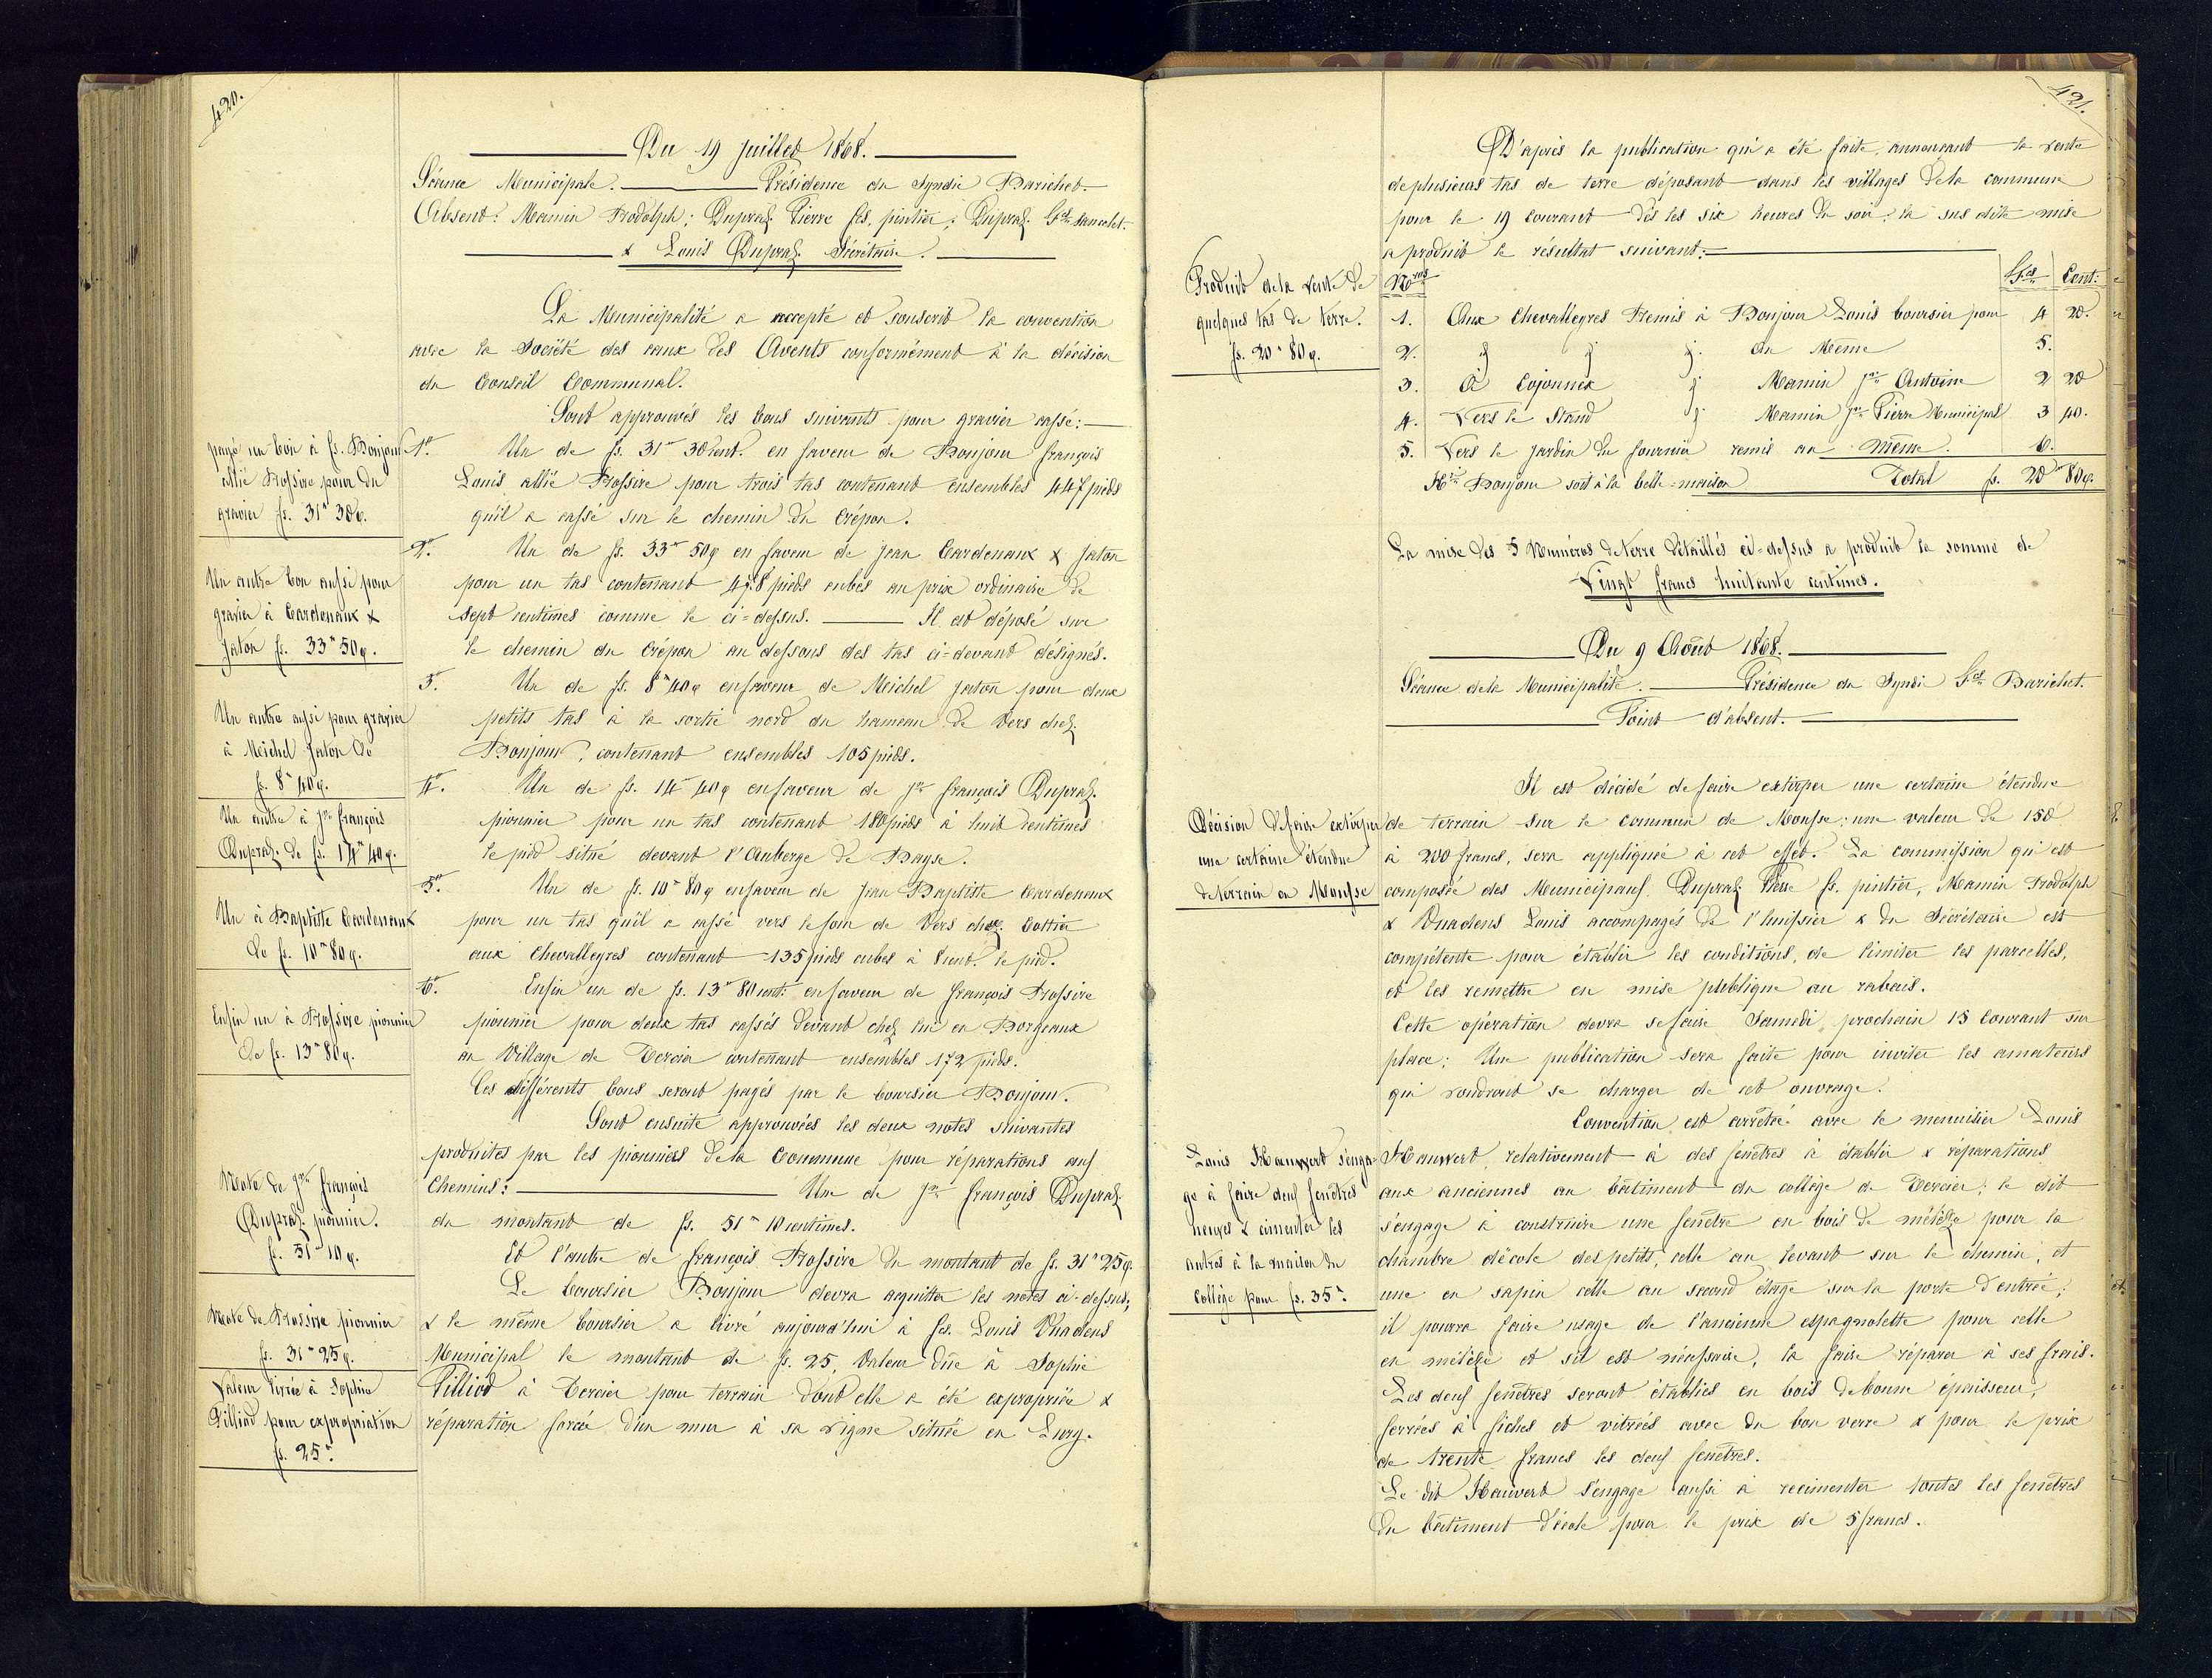 420.
Du 19 Juillet 1868.
Séance Municipale. Présidence du Syndic Barichet.
Absent: Mamin Rodolph; Dupraz Pierre fs. pintier; Dupraz
& Louis Dupraz Sécrétaire.
La Municipalité a accepté et souscrit la convention
avec la Société des eaux des Avents conformément à la décision
du Conseil Communal.
Sont approuvés les bons suivants pour gravier cassé:
payé un bon à fs. Bonjour
allié Rossire pour du
gravier fs. 31" 30c.
1º. Un de fs. 31" 30 cent. en faveur de Bonjour françois
Louis allié Rossire pour trois tas contenant ensembles 447 pieds
qu'il a cassé sur le chemin du Crépon.
Un autre bon aussi pour
gravier à Cardenaux &
Jaton fs. 33" 50c.
2º. Un de fs. 33" 50c en faveur de Jean Cardenaux & Jaton
pour un tas contenant 478 pieds cubes au prix ordinaire de
sept centimes comme le ci-dessus. Il est déposé sur
le chemin du Crépon au dessous des tas ci-devant désignés.
Un autre aussi pour gravier
à Meichel Jaton de
fs. 8" 40c.
3º. Un de fs. 8" 40c en faveur de Meichel Jaton pour deux
petits tas à la sortie nord du hameau de Vers chez
Bonjour, contenant ensembles 105 pieds.
Un autre à Jn françois
Dupraz de fs. 14" 40c.
4º. Un de fs. 14" 40c en faveur de Jn françois Dupraz
pionnier pour un tas contenant 180 pieds à huit centimes
le pied situé devant l'Auberge de Bayse.
Un à Baptiste Cardenaux
de fs. 10" 80c.
5º. Un de fs. 10" 80c en faveur de Jean Baptiste Cardenaux
pour un tas qu'il a cassé vers le four de Vers chez Cottier
aux Chevalleyres contenant 135 pieds cubes à 8 cent. le pied.
Enfin un à Rossire pionnier
de fs. 13" 80c.
6º. Enfin un de fs. 13" 80 cent: en faveur de françois Rossire
pionnier pour deux tas cassés devant chez lui en Borgeaux
au Village de Tercier contenant ensembles 172 pieds.
Ces différents bons seront payés par le boursier Bonjour.
Sont ensuite approuvées les deux notes suivantes
produites par les pionniers de la Commune pour réparations aux
Chemins: Une de Jn françois Dupraz
du montant de fs. 51" 10 centimes.
Note de Jn françois
Dupraz pionnier.
fs. 51" 10c.
Et l'autre de françois Rossire du montant de fs. 31" 25c.
Le boursier Bonjour devra acquitter les notes ci-dessus,
Note de Rossire pionnier
fs. 31" 25c.
& le même boursier a livré aujourd'hui à fs. Louis Vuadens
Municipal le montant de fs. 25, Valeur düe à Sophie
Pilliod à Tercier pour terrain dont elle a été expropriée &
réparation forcée d'un mur à sa vigne située en Lury.
Valeur livrée à Sophie
Pilliod pour expropriation
fs. 25".
421.
D'après la publication qui a été faite annonçant la vente
de plusieurs tas de terre déposant dans les villages de la commune
pour le 19 courant dès les six heures du soir; la sus dite mise
a produit le résultat suivant:
Produit de la vente de
quelques tas de terre.
fs. 20" 80c.
Nos Fcs Cent:
1. Aux Chevalleyres Remis à Bonjour Louis boursier pour 4 20.
2. " " " au Même 5.
3. à Cojonnex " Mamin Jn Antoine 2 20
4. Vers le Stand " Mamin Jn Pierre Municipal 3 40.
5. Vers le jardin du fournier remis au même. 6.
Bonjour soit à la belle-maison Total fs. 20" 80c.
La mise des 5 Numéros de terre détaillés ci-dessus a produit la somme de
Vingt francs huitante centimes.
Du 9 Août 1868.
Séance de la Municipalité. Présidence du Syndic Barichet.
Point d'absent.
Il est décidé de faire extirper une certaine étendue
de terrain sur le commun de Mousse; une valeur de 150
à 200 francs, sera appliquée à cet effet. La commission qui est
composée des Municipaux Dupraz Pierre fs. pintier, Mamin Rodolph
& Vuadens Louis accompagés de l'huissier & du Sécrétaire est
compétente pour établir les conditions, de limiter les parcelles,
et les remettre en mise publique au rabais.
Décision de faire extirper
une certaine étendue
de terrain en Mousse
Cette opération devra se faire Samedi prochain 15 Courant sur
place; Une publication sera faite pour inviter les amateurs
qui voudront se charger de cet ouvrage.
Convention est arrêtée avec le menuisier Louis
Hauwert, relativement à des fenêtres à établir & réparations
aux anciennes au bâtiment du collège de Tercier; le dit
s'engage à construire une fenêtre en bois de mélèze pour la
chambre d'école des petits, celle au levant sur le chemin, et
une en sapin celle au second étage sur la porte d'entrée;
il pourra faire usage de l'ancienne espagnolette pour celle
en mélèze et s'il est nécessaire, la faire réparer à ses frais.
Les deux fenêtres seront établies en bois de bonne épaisseur,
ferrées à fiches et vitrées avec du bon verre & pour le prix
de trente francs les deux fenêtres.
Le dit Hauwert s'engage aussi à recimenter toutes les fenêtres
du bâtiment d'école pour le prix de 5 francs.
Louis Hauwert s'enga-
ge à faire deux fenêtres
neuves & cimenter les
autres à la maison du
Collège pour fs. 35".